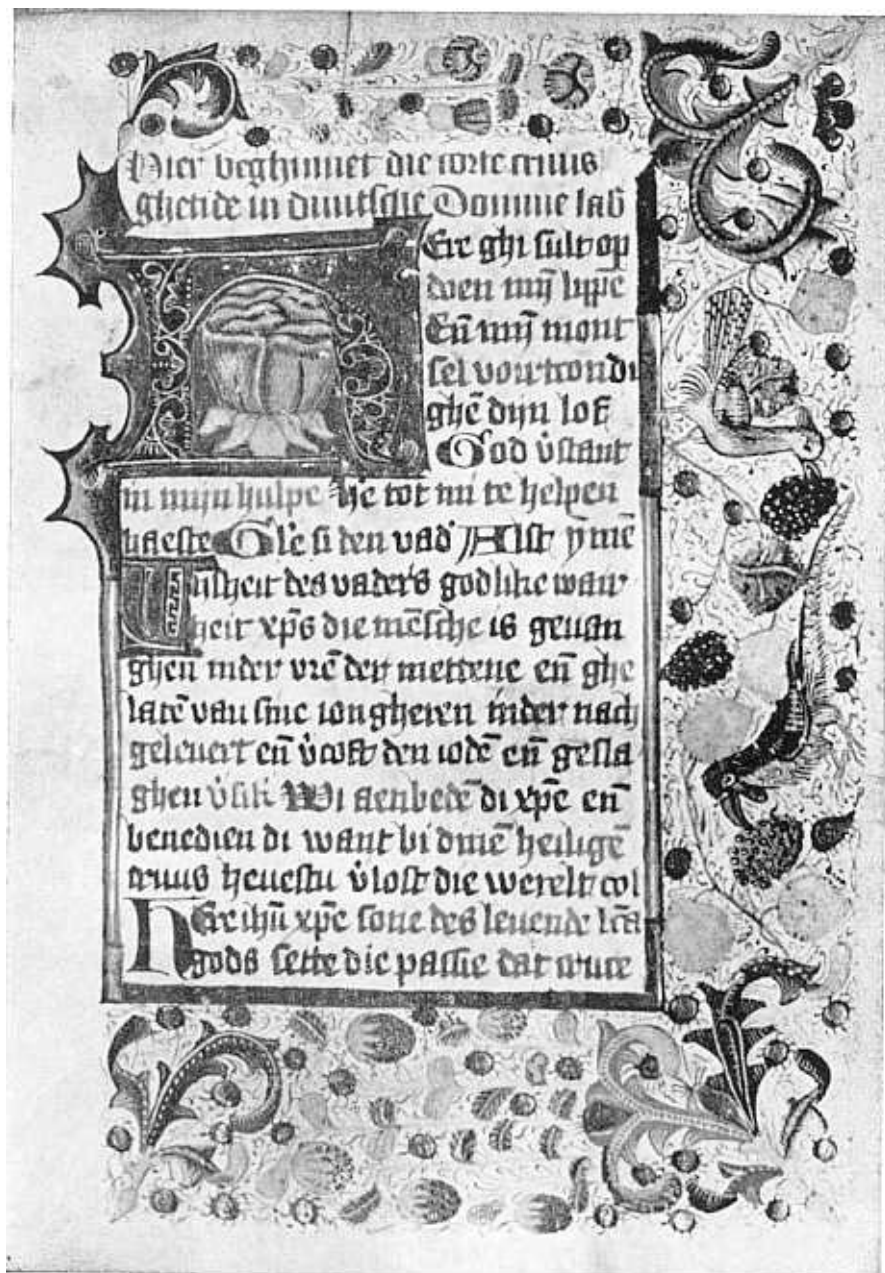 Hier beghinnet die corte cruus
ghetide in duutsche Domine lab̄
Ere ghi sult op
doen mijn lippē
En̄ mijn mont
sel voirtcondi
ghē dijn lof
God v̄staut
in mijn hulpe h̓e tot mi te helpen
haeste Gl̓e si den vad̓ Alst ȳ mē
Wijsheit des vaders godlike waer
heit xp̄s die mēsche is geuan
ghen inder vrē der mettene en̄ ghe
latē van sine iongheren inder nach
geleuert en̄ v̓coft den iodē en̄ gesla
ghen Wi aenbedē di xp̄e en̄
benedien di want bi dinē heiligē
cruus heuestu v̓lost die werelt col
Here ihū xp̄e sone des leuende
gods sette die passie dat cruce